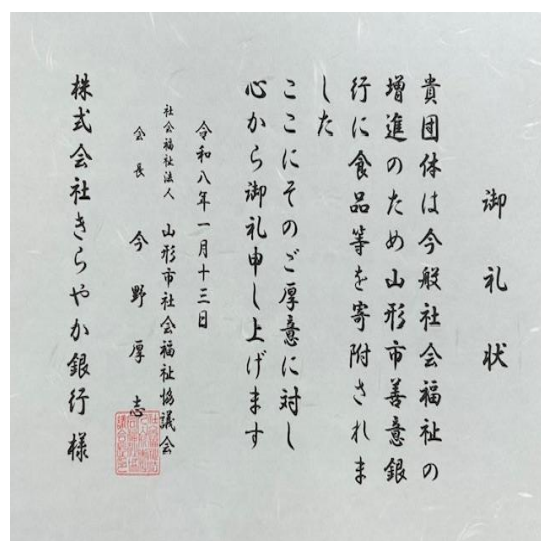 御礼状
貴団体は今般社会福祉の
増進のため山形市善意銀
行に食品等を寄附されま
した
ここにそのご厚意に対し
心から御礼申し上げます
令和八年一月十三日
社会福祉法人 山形市社会福祉協議会
会長 今野厚志
株式会社きらやか銀行様